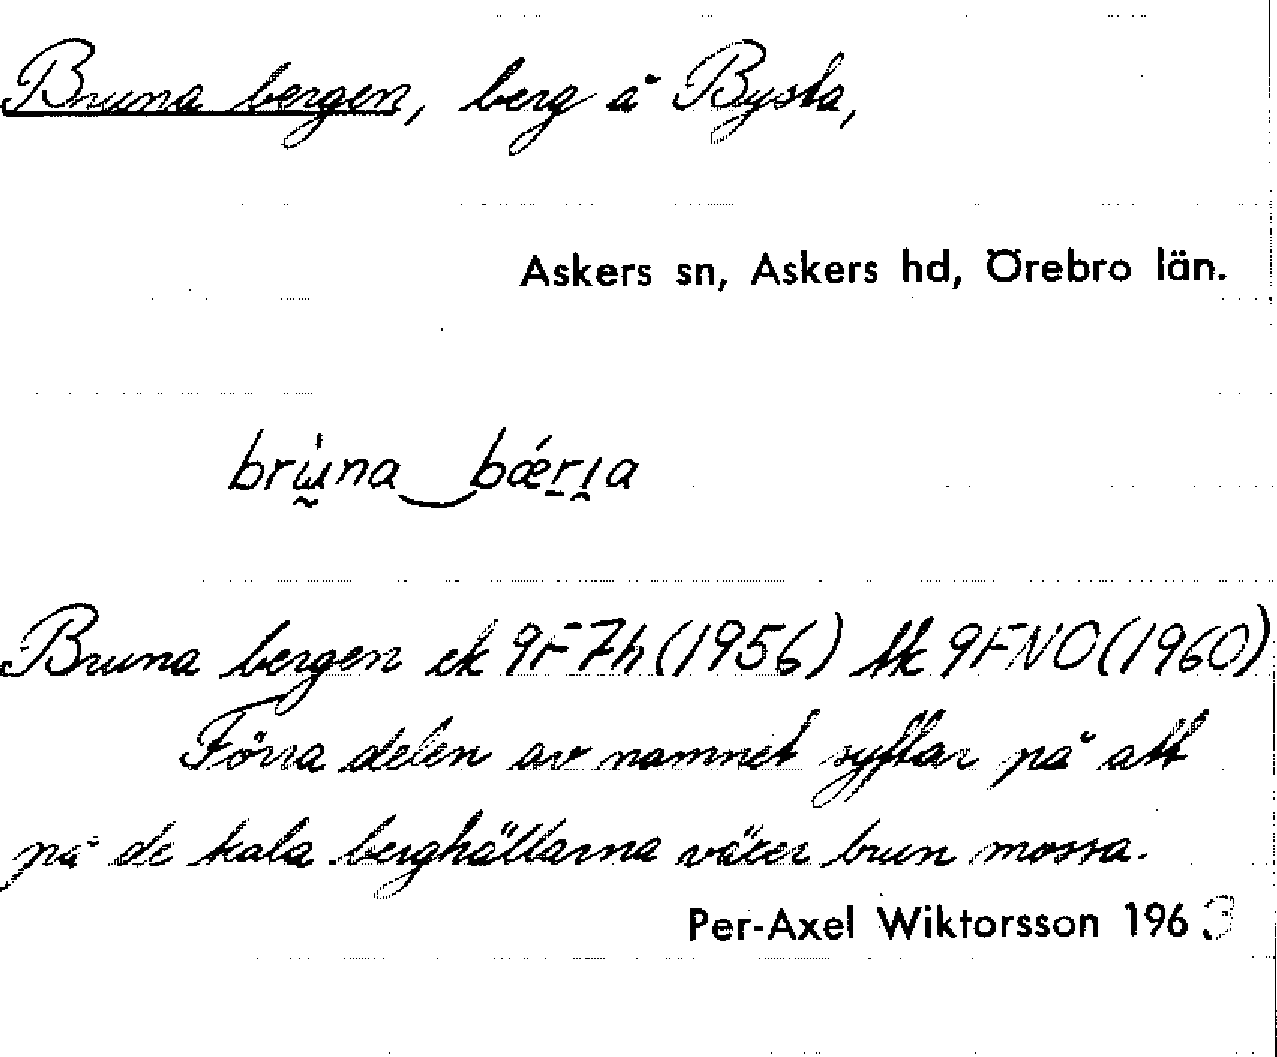 Bruna bergen, berg å Bysta,
Askers sn, Askers hd, Örebro län.
bruna bærıa
Bruna bergen ek 9F7h (1956) tk 9FNO (1960)
Förra delen av namnet syftar på att
på de kala berghällarna växer brun mossa.
Per-Axel Wiktorsson 1963